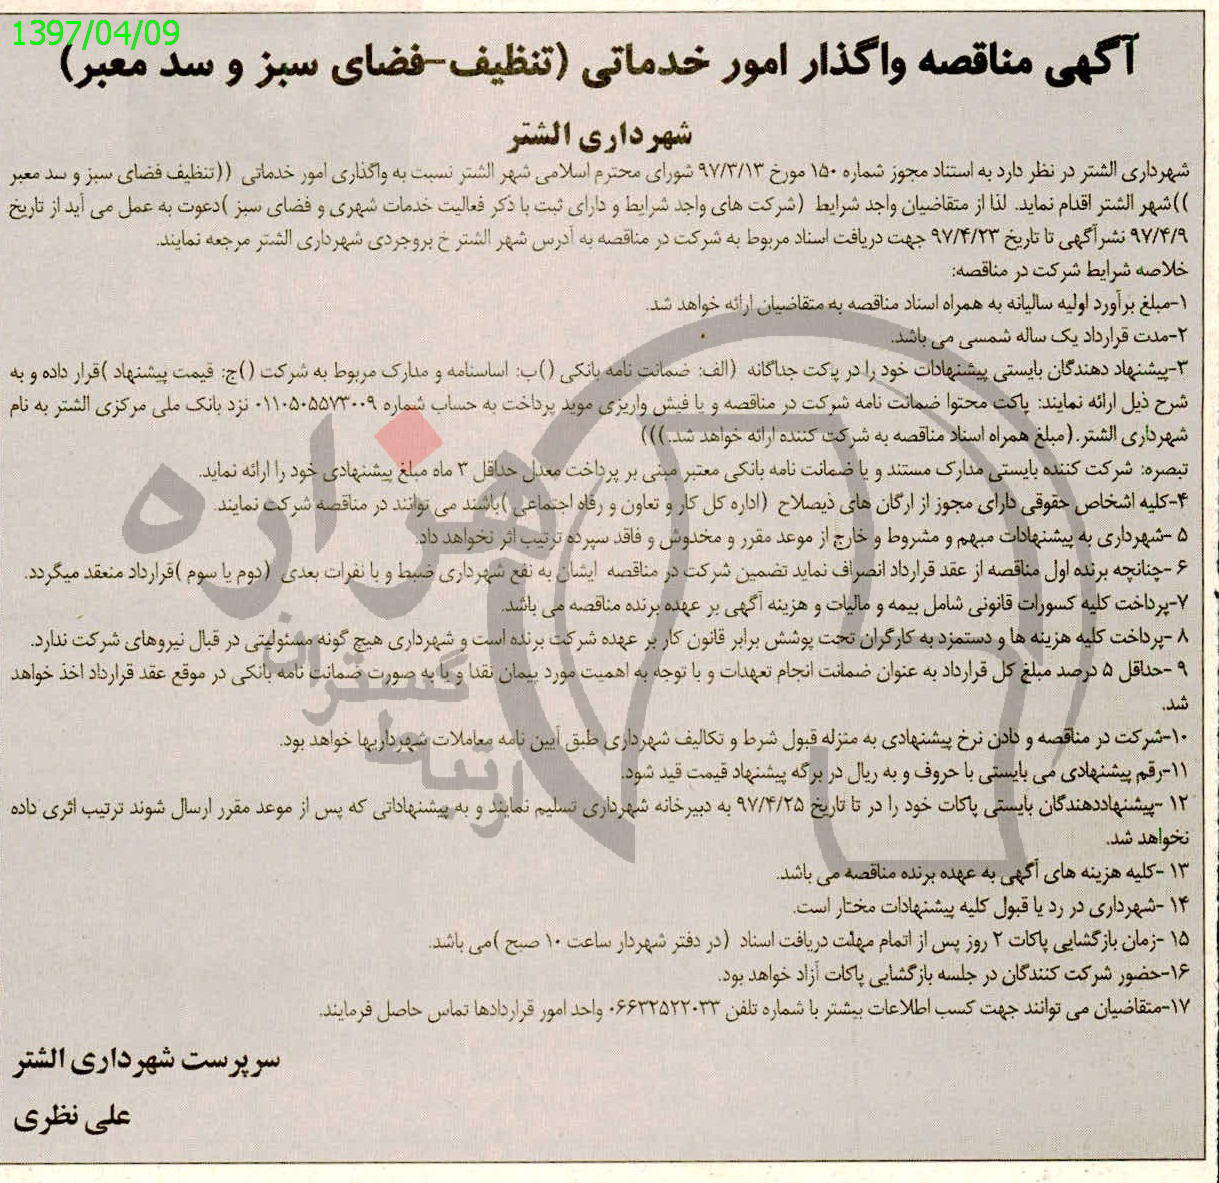 1397/04/09
آگهی مناقصه واگذار امور خدماتی (تنظیف-فضای سبز و سد معبر)
شهرداری الشتر
شهرداری الشتر در نظر دارد به استناد مجوز شماره ۱۵۰ مورخ ۹۷/۳/۱۳ شورای محترم اسلامی شهر الشتر نسبت به واگذاری امور خدماتی ((تنظیف فضای سبز و سد معبر
))شهر الشتر اقدام نماید. لذا از متقاضیان واجد شرایط (شرکت های واجد شرایط و دارای ثبت با ذکر فعالیت خدمات شهری و فضای سبز )دعوت به عمل می آید از تاریخ
۹۷/۴/۹ نشرآگهی تا تاریخ ۹۷/۴/۲۳ جهت دریافت اسناد مربوط به شرکت در مناقصه به آدرس شهر الشتر خ بروجردی شهرداری الشتر مرجعه نمایند.
خلاصه شرایط شرکت در مناقصه:
۱-مبلغ برآورد اولیه سالیانه به همراه اسناد مناقصه به متقاضیان ارائه خواهد شد.
۲-مدت قرارداد یک ساله شمسی می باشد.
۳-پیشنهاد دهندگان بایستی پیشنهادات خود را در پاکت جداگانه (الف: ضمانت نامه بانکی ()ب: اساسنامه و مدارک مربوط به شرکت ()ج: قیمت پیشنهاد )قرار داده و به
شرح ذیل ارائه نمایند: پاکت محتوا ضمانت نامه شرکت در مناقصه و یا فیش واریزی موید پرداخت به حساب شماره ۰۱۱۰۵۰۵۵۷۳۰۰۹ نزد بانک ملی مرکزی الشتر به نام
شهرداری الشتر.(مبلغ همراه اسناد مناقصه به شرکت کننده ارائه خواهد شد.)))
تبصره: شرکت کننده بایستی مدارک مستند و یا ضمانت نامه بانکی معتبر مبنی بر پرداخت معدل حداقل ۳ ماه مبلغ پیشنهادی خود را ارائه نماید.
۴-کلیه اشخاص حقوقی دارای مجوز از ارگان های ذیصلاح (اداره کل کار و تعاون و رفاه اجتماعی )باشند می توانند در مناقصه شرکت نمایند.
۵ -شهرداری به پیشنهادات مبهم و مشروط و خارج از موعد مقرر و مخدوش و فاقد سپرده ترتیب اثر نخواهد داد.
۶ -چنانچه برنده اول مناقصه از عقد قرارداد انصراف نماید تضمین شرکت در مناقصه ایشان به نفع شهرداری ضبط و با نفرات بعدی (دوم یا سوم )قرارداد منعقد میگردد.
۷-پرداخت کلیه کسورات قانونی شامل بیمه و مالیات و هزینه آگهی بر عهده برنده مناقصه می باشد.
۸ -پرداخت کلیه هزینه ها و دستمزد به کارگران تحت پوشش برابر قانون کار بر عهده شرکت برنده است و شهرداری هیچ گونه مسئولیتی در قبال نیروهای شرکت ندارد.
۹ -حداقل ۵ درصد مبلغ کل قرارداد به عنوان ضمانت انجام تعهدات و با توجه به اهمیت مورد پیمان نقدا و یا به صورت ضمانت نامه بانکی در موقع عقد قرارداد اخذ خواهد
شد.
۱۰-شرکت در مناقصه و دادن نرخ پیشنهادی به منزله قبول شرط و تکالیف شهرداری طبق آیین نامه معاملات شهرداریها خواهد بود.
۱۱-رقم پیشنهادی می بایستی با حروف و به ریال در برگه پیشنهاد قیمت قید شود.
۱۲ -پیشنهاددهندگان بایستی پاکات خود را در تا تاریخ ۹۷/۴/۲۵ به دبیرخانه شهرداری تسلیم نمایند و به پیشنهاداتی که پس از موعد مقرر ارسال شوند ترتیب اثری داده
نخواهد شد.
۱۳ -کلیه هزینه های آگهی به عهده برنده مناقصه می باشد.
۱۴ -شهرداری در رد یا قبول کلیه پیشنهادات مختار است.
۱۵ -زمان بازگشایی پاکات ۲ روز پس از اتمام مهلت دریافت اسناد (در دفتر شهردار ساعت ۱۰ صبح )می باشد.
۱۶-حضور شرکت کنندگان در جلسه بازگشایی پاکات آزاد خواهد بود.
۱۷-متقاضیان می توانند جهت کسب اطلاعات بیشتر با شماره تلفن ۰۶۶۳۲۵۲۲۰۳۳ واحد امور قراردادها تماس حاصل فرمایند.
سرپرست شهرداری الشتر
علی نظری
هزاره
گستران
ارتباط